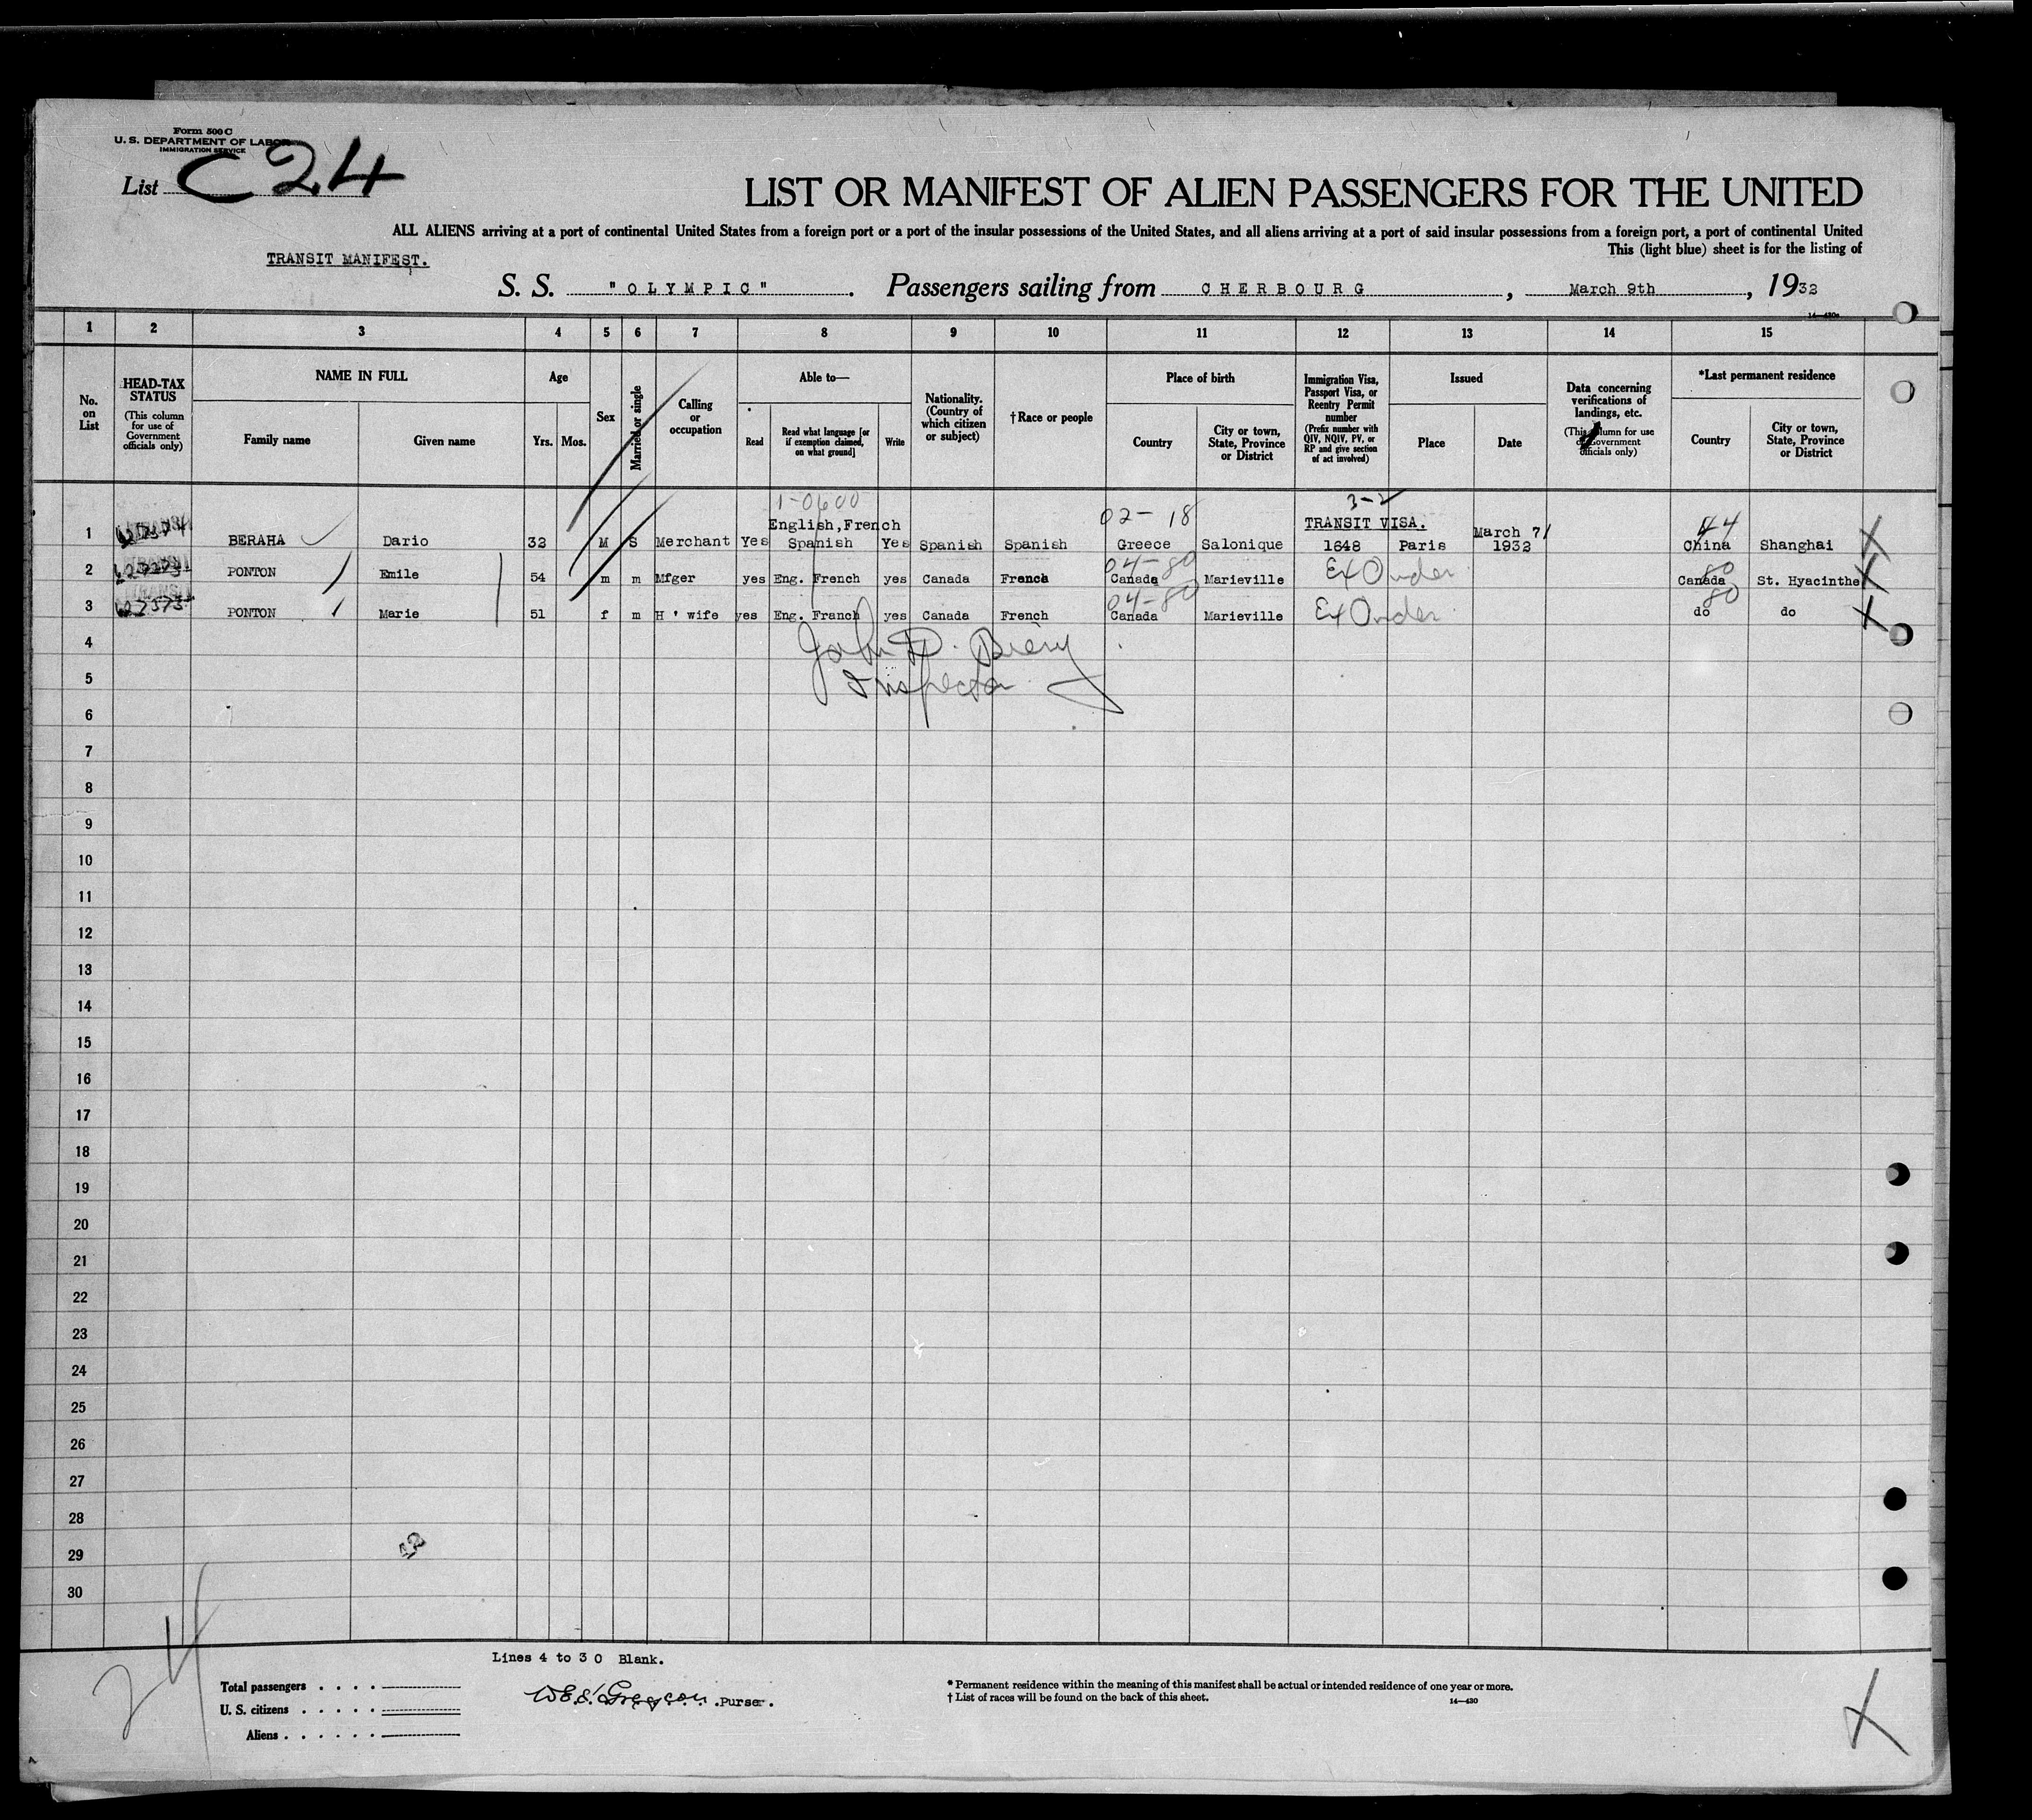 Form 500 C
U. S. DEPARTMENT OF LABOR
IMMIGRATION SERVICE
List C 24
LIST OR MANIFEST OF ALIEN PASSENGERS FOR THE UNITED
ALL ALIENS arriving at a port of continental United States from a foreign port or a port of the insular possessions of the United States, and all aliens arriving at a port of said insular possessions from a foreign port, a port of continental United
This (light blue) sheet is for the listing of
TRANSIT MANIFEST.
S. S. "OLYMPIC". Passengers sailing from CHERBOURG, March 9th, 1932
14—430
1 2 3 4 5 6 7 8 9 10 11 12 13 14 15
No. on List
HEAD-TAX STATUS
(This column for use of Government officials only)
NAME IN FULL
Family name
Given name
Age
Yrs.
Mos.
Sex
Married or single
Calling or occupation
Able to—
Read
Read what language [or if exemption claimed, on what ground]
Write
Nationality. (Country of which citizen or subject)
†Race or people
Place of birth
Country
City or town, State, Province or District
Immigration Visa, Passport Visa, or Reentry Permit number
(Prefix number with QIV, NQIV, PV, or RP and give section of act involved)
Issued
Place
Date
Data concerning verifications of landings, etc.
(This column for use of Government officials only)
*Last permanent residence
Country
City or town, State, Province or District
1-0600 02-18 3-2 44
English, French TRANSIT VISA. March 7/
1 BERAHA Dario 32 M S Merchant Yes Spanish Yes Spanish Spanish Greece Salonique 1648 Paris 1932 China Shanghai X
04-80 80
2 PONTON Emile 54 m m Mfger yes Eng. French yes Canada French Canada Marieville Ex Order Canada St. Hyacinthe X
04-80 80
3 PONTON Marie 51 f m H' wife yes Eng. French yes Canada French Canada Marieville Ex Order do do X
4 John D.
5 Inspector
6
7
8
9
10
11
12
13
14
15
16
17
18
19
20
21
22
23
24
25
26
27
28
29
30
24
Lines 4 to 30 Blank.
Total passengers . . . .
U. S. citizens . . . . .
Aliens . . . . . .
Purser.
* Permanent residence within the meaning of this manifest shall be actual or intended residence of one year or more.
† List of races will be found on the back of this sheet.
14—430
X